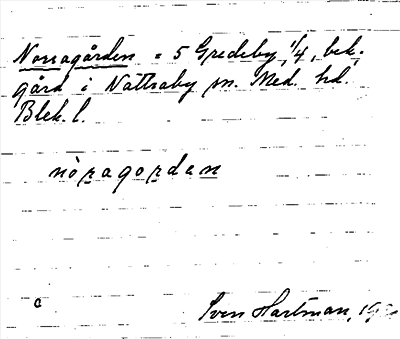 Norragården = 5 Gredeby, 1/4, bek.
gård i Nättraby sn. Med. hd.
Blek. l.
nòragordan
c
Sven Hartman,